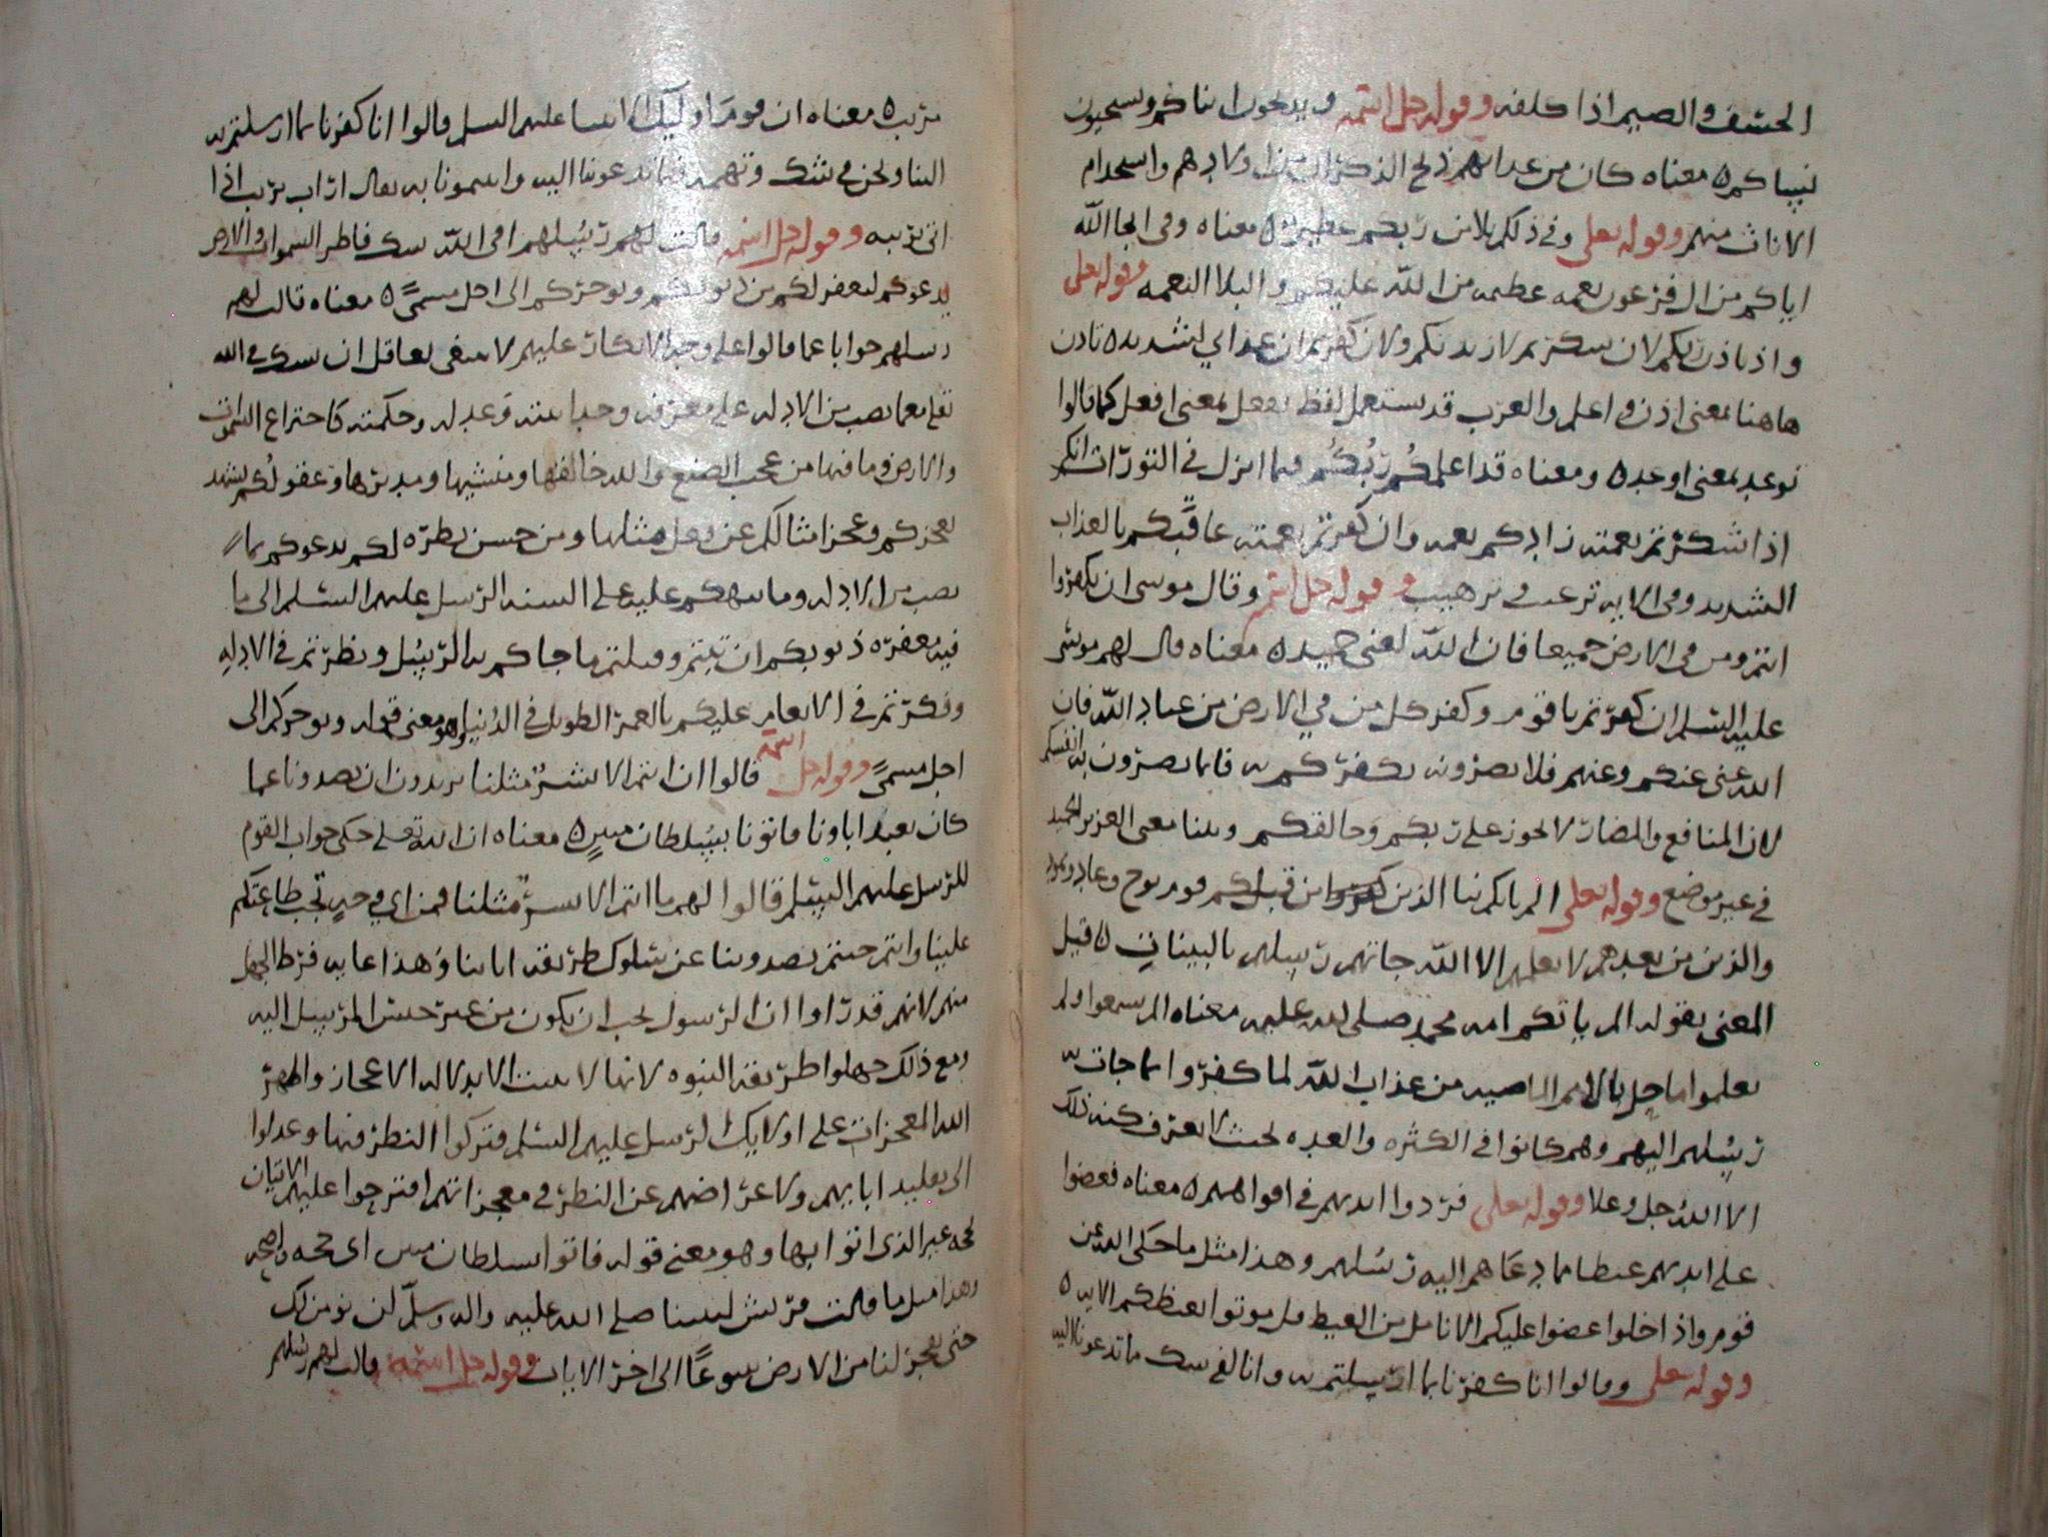 الخسف والضيم اذا كلفه وقوله جل اسمه ويذبحون ابناكم ويستحيون
نساكم ه معناه كان من عذابهم ذبح الذكران من اولادهم واستخدام
الاناث منهم وقوله تعلى وفي ذلكم بلا من ربكم عظيم ه معناه وفي انجا الله
اياكم من ال فرعون نعمه عظيمه من الله عليكم والبلا النعمه وقوله تعلى
واذ تاذن ربكم لان شكرتم لازيدنكم ولان كفرتم ان عذابي لشديد ه تاذن
هاهنا بمعنى اذن واعلم والعرب قد يستعمل لفظ تفعل بمعنى افعل كما قالوا
توعد بمعنى اوعد ه ومعناه قد اعلمكم ربكم فيما انزل في التورات انكم
اذا شكرتم نعمته زادكم نعمه وان كفرتم نعمته عاقبكم بالعذاب
الشديد وفي الايه ترغيب وترهيب وقوله جل اسمه وقال موسى ان تكفروا
انتم ومن في الارض جميعا فان الله لغني حميد ه معناه قال لهم موسى
عليه السلم ان كفرتم يا قوم وكفر كل من في الارض من عباد الله فان
الله غني عنكم وعنهم فلا تضرونه بكفركم به فانما تضرون به انفسكم
لان المنافع والمضار لا تجوز على ربكم وخالقكم وبينا معنى العزيز الحميد
في غير موضع وقوله تعلى الم ياتكم نبا الذين من قبلكم قوم نوح وعاد وثمود
والذين من بعدهم لا يعلمهم الا الله جاتهم رسلهم بالبينات ه قيل
المعنى بقوله الم ياتكم امه محمد صلى الله عليه معناه الم تسمعوا ولم
تعلموا ما حل بالامم الماضيه من عذاب الله لما كفروا بما جات به
رسلهم اليهم وهم كانوا في الكثره والعده بحيث لا يعرف كنه ذلك
الا الله جل وعلا وقوله تعلى فردوا ايديهم في افواههم ه معناه فعضوا
على ايديهم غيظا مما دعاهم اليه رسلهم وهذا مثل ما حكى الله عن
قوم واذا خلوا عضوا عليكم الانامل من الغيظ قل موتوا بغيظكم الايه ه
وقوله تعلى وقالوا انا كفرنا بما ارسلتم به وانا لفي شك مما تدعوننا اليه
مريب ه معناه ان قوم اوليك الانبيا عليهم السلم قالوا انا كفرنا بما ارسلتم به
الينا ونحن في شك وتهمه فيما تدعوننا اليه يقال اراب يريب اذا
اتى بريبه وقوله جل اسمه قالت لهم رسلهم افي الله شك فاطر السموات والارض
يدعوكم ليغفر لكم من ذنوبكم ويوخركم الى اجل مسمى ه معناه قالت لهم
رسلهم جوابا عما قالوا على وجه الانكار عليهم لا ينبغي لعاقل ان يشك في الله
تعلى مع ما نصب من الادله على معرفته وحدانيته وعدله وحكمته كاختراع السموات
والارض وما فيها من عجيب الصنع والله خالقها ومنشيها ومدبرها وعقولكم يشهد
بعجزكم وعجز امثالكم عن فعل مثلها ومن حسن نظره لكم يدعوكم بما
نصب من الادله وما نبهكم عليه على السنه الرسل عليهم السلم الى ما
فيه مغفره ذنوبكم ان تبتم وقبلتم ما جاكم به الرسل ونظرتم في الادله
وفكرتم في الانعام عليكم بالعمر الطويل في الدنيا وهو معنى قوله ويوخركم الى
اجل مسمى وقوله جل اسمه قالوا ان انتم الا بشر مثلنا تريدون ان تصدونا عما
كان يعبد اباونا فاتونا بسلطان مبين ه معناه ان الله تعلى حكى جواب القوم
للرسل عليهم السلم فقالوا لهم ما انتم الا بشر مثلنا فمن اي وجه تجب طاعتكم
علينا وانتم جيتم تصدوننا عن سلوك طريقه اباينا وهذا غايه فرط الجهل
منهم لانهم قد راوا ان الرسول يجب ان يكون من غير جنس المرسل اليه
ومع ذلك جهلوا طريقه النبوه لانها لا تثبت الا بدلاله الاعجاز واظهر
الله المعجزات على اولايك الرسل عليهم السلم فتركوا النظر فيها وعدلوا
الى تقليد ابايهم ولاعراضهم عن النظر في معجزاتهم اقترحوا عليهم الاتيان
بحجه غير الذي اتوا بها وهو معنى قوله فاتوا بسلطان مبين اي حجه واضحه
وهذا مثل ما قالت قريش لنبينا صلى الله عليه واله وسلم لن نومن لك
حتى تفجر لنا من الارض ينبوعا الى اخر الايات وقوله جل اسمه قالت لهم رسلهم